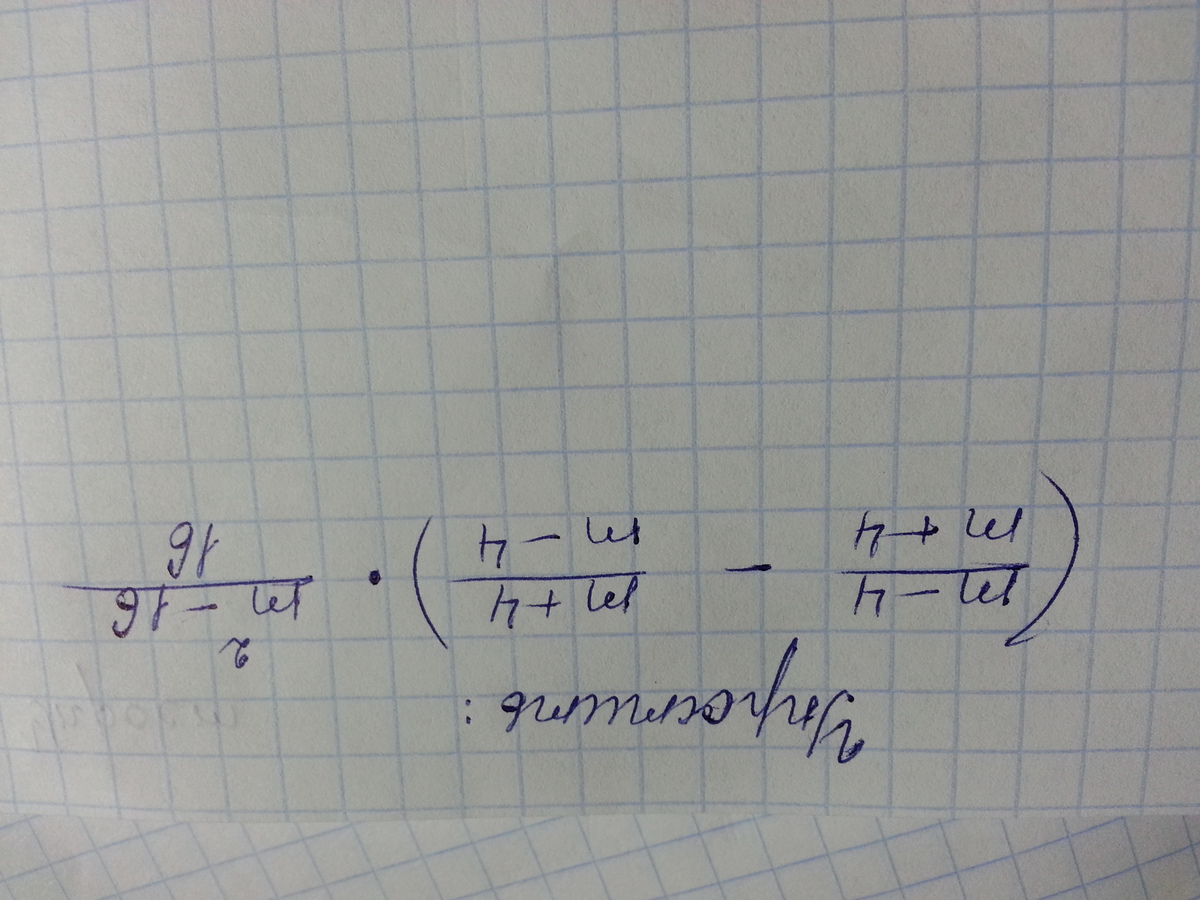 Упростить:
(\frac{m-4}{m+4} - \frac{m+4}{m-4}) · \frac{m²-16}{16}